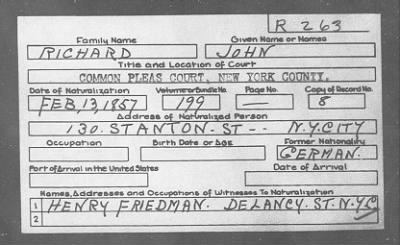 R 263
Family Name Given Name or Names
RICHARD JOHN
Title and Location of Court
COMMON PLEAS COURT, NEW YORK COUNTY.
Date of Naturalization Volume or Bundle No. Page No. Copy of Record No.
FEB, 13, 1857 199 — 8
Address of Naturalized Person
130. STANTON. ST -- N.Y. CITY
Occupation Birth Date or Age Former Nationality
GERMAN.
Port of Arrival in the United States Date of Arrival
Names, Addresses and Occupations of Witnesses To Naturalization
1 HENRY FRIEDMAN. DELANCY. ST. N.Y.C
2